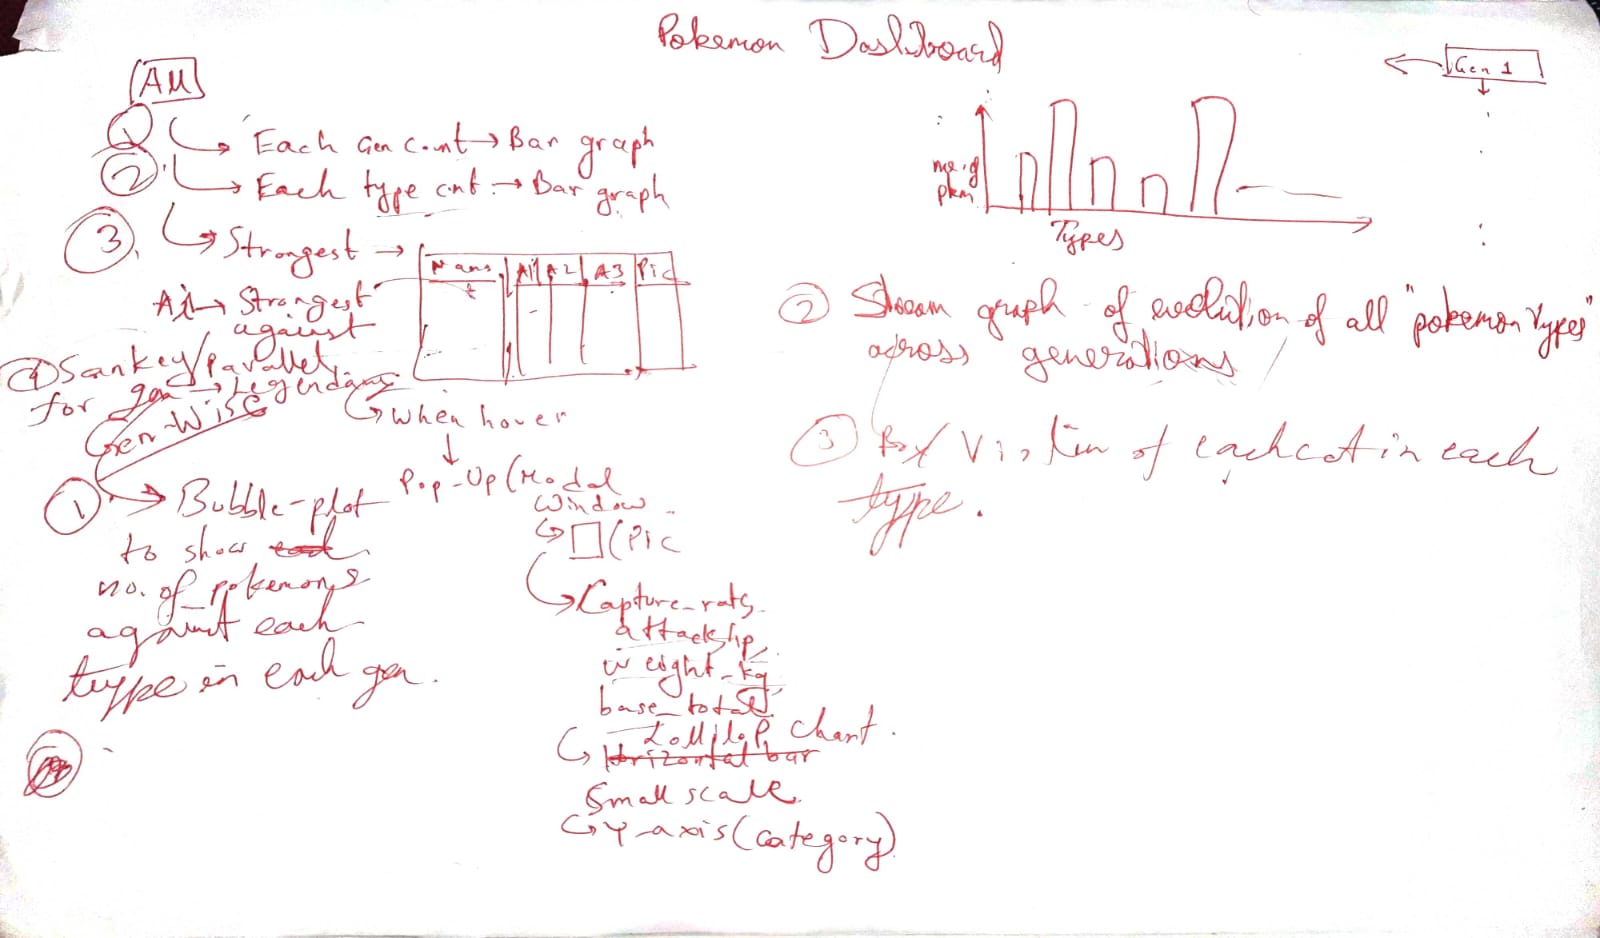 Pokemon Dashboard
All
1 Each Gen count → Bar graph
2 Each type cnt → Bar graph
3 Strongest →
Name A1 A2 A3 Pic
Ai → Strongest
against
4 Sankey/Parallel
for gen → Legendary
Gen-Wise
When hover
Pop-Up (Modal
Window
(Pic
Capture_rate
attack, hp,
weight_kg
base_total
Lollipop Chart.
Horizontal bar
Small scale
Y-axis (category)
1 → Bubble-plot
to show
no. of pokemons
against each
type in each gen.
Gen 1
no. of
pkm
Types
2 Stream graph of evolution of all "pokemon types"
across generations
3 Box/Violin of each cat in each
type.